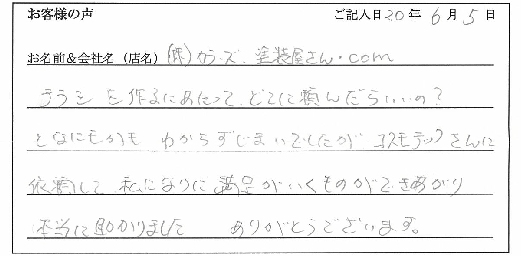 お客様の声 ご記入日20年6月5日
お名前&会社名(店名) (株)カラーズ 塗装屋さん・com
チラシを作るにあたって、どこに頼んだらいいの?
となにもかも わからずじまいでしたが コスモテックさんに
依頼して 私なりに満足がいくものができあがり
本当に助かりました ありがとうございます。